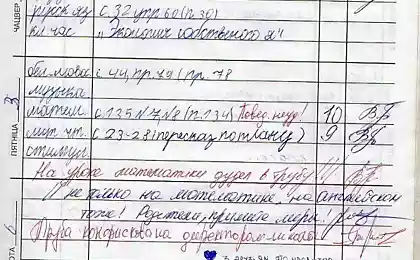 ЧАЦВЕР
русск яз с. 32 упр 60 (п. 30)
кл час "Экология собственного я"
ПЯТНІЦА
3
бел. мова с 44, пр. 79 / пр. 78
музыка
матем. с. 135 N 7 N 8 (п. 134) Повед. неуд! 10
лит чт. с. 23-28 (пересказ по плану) 9
На уроке математики дудел в трубу!!!
не только на математике, на английском
тоже! Родители, примите меры!
Труба конфискована директором школы